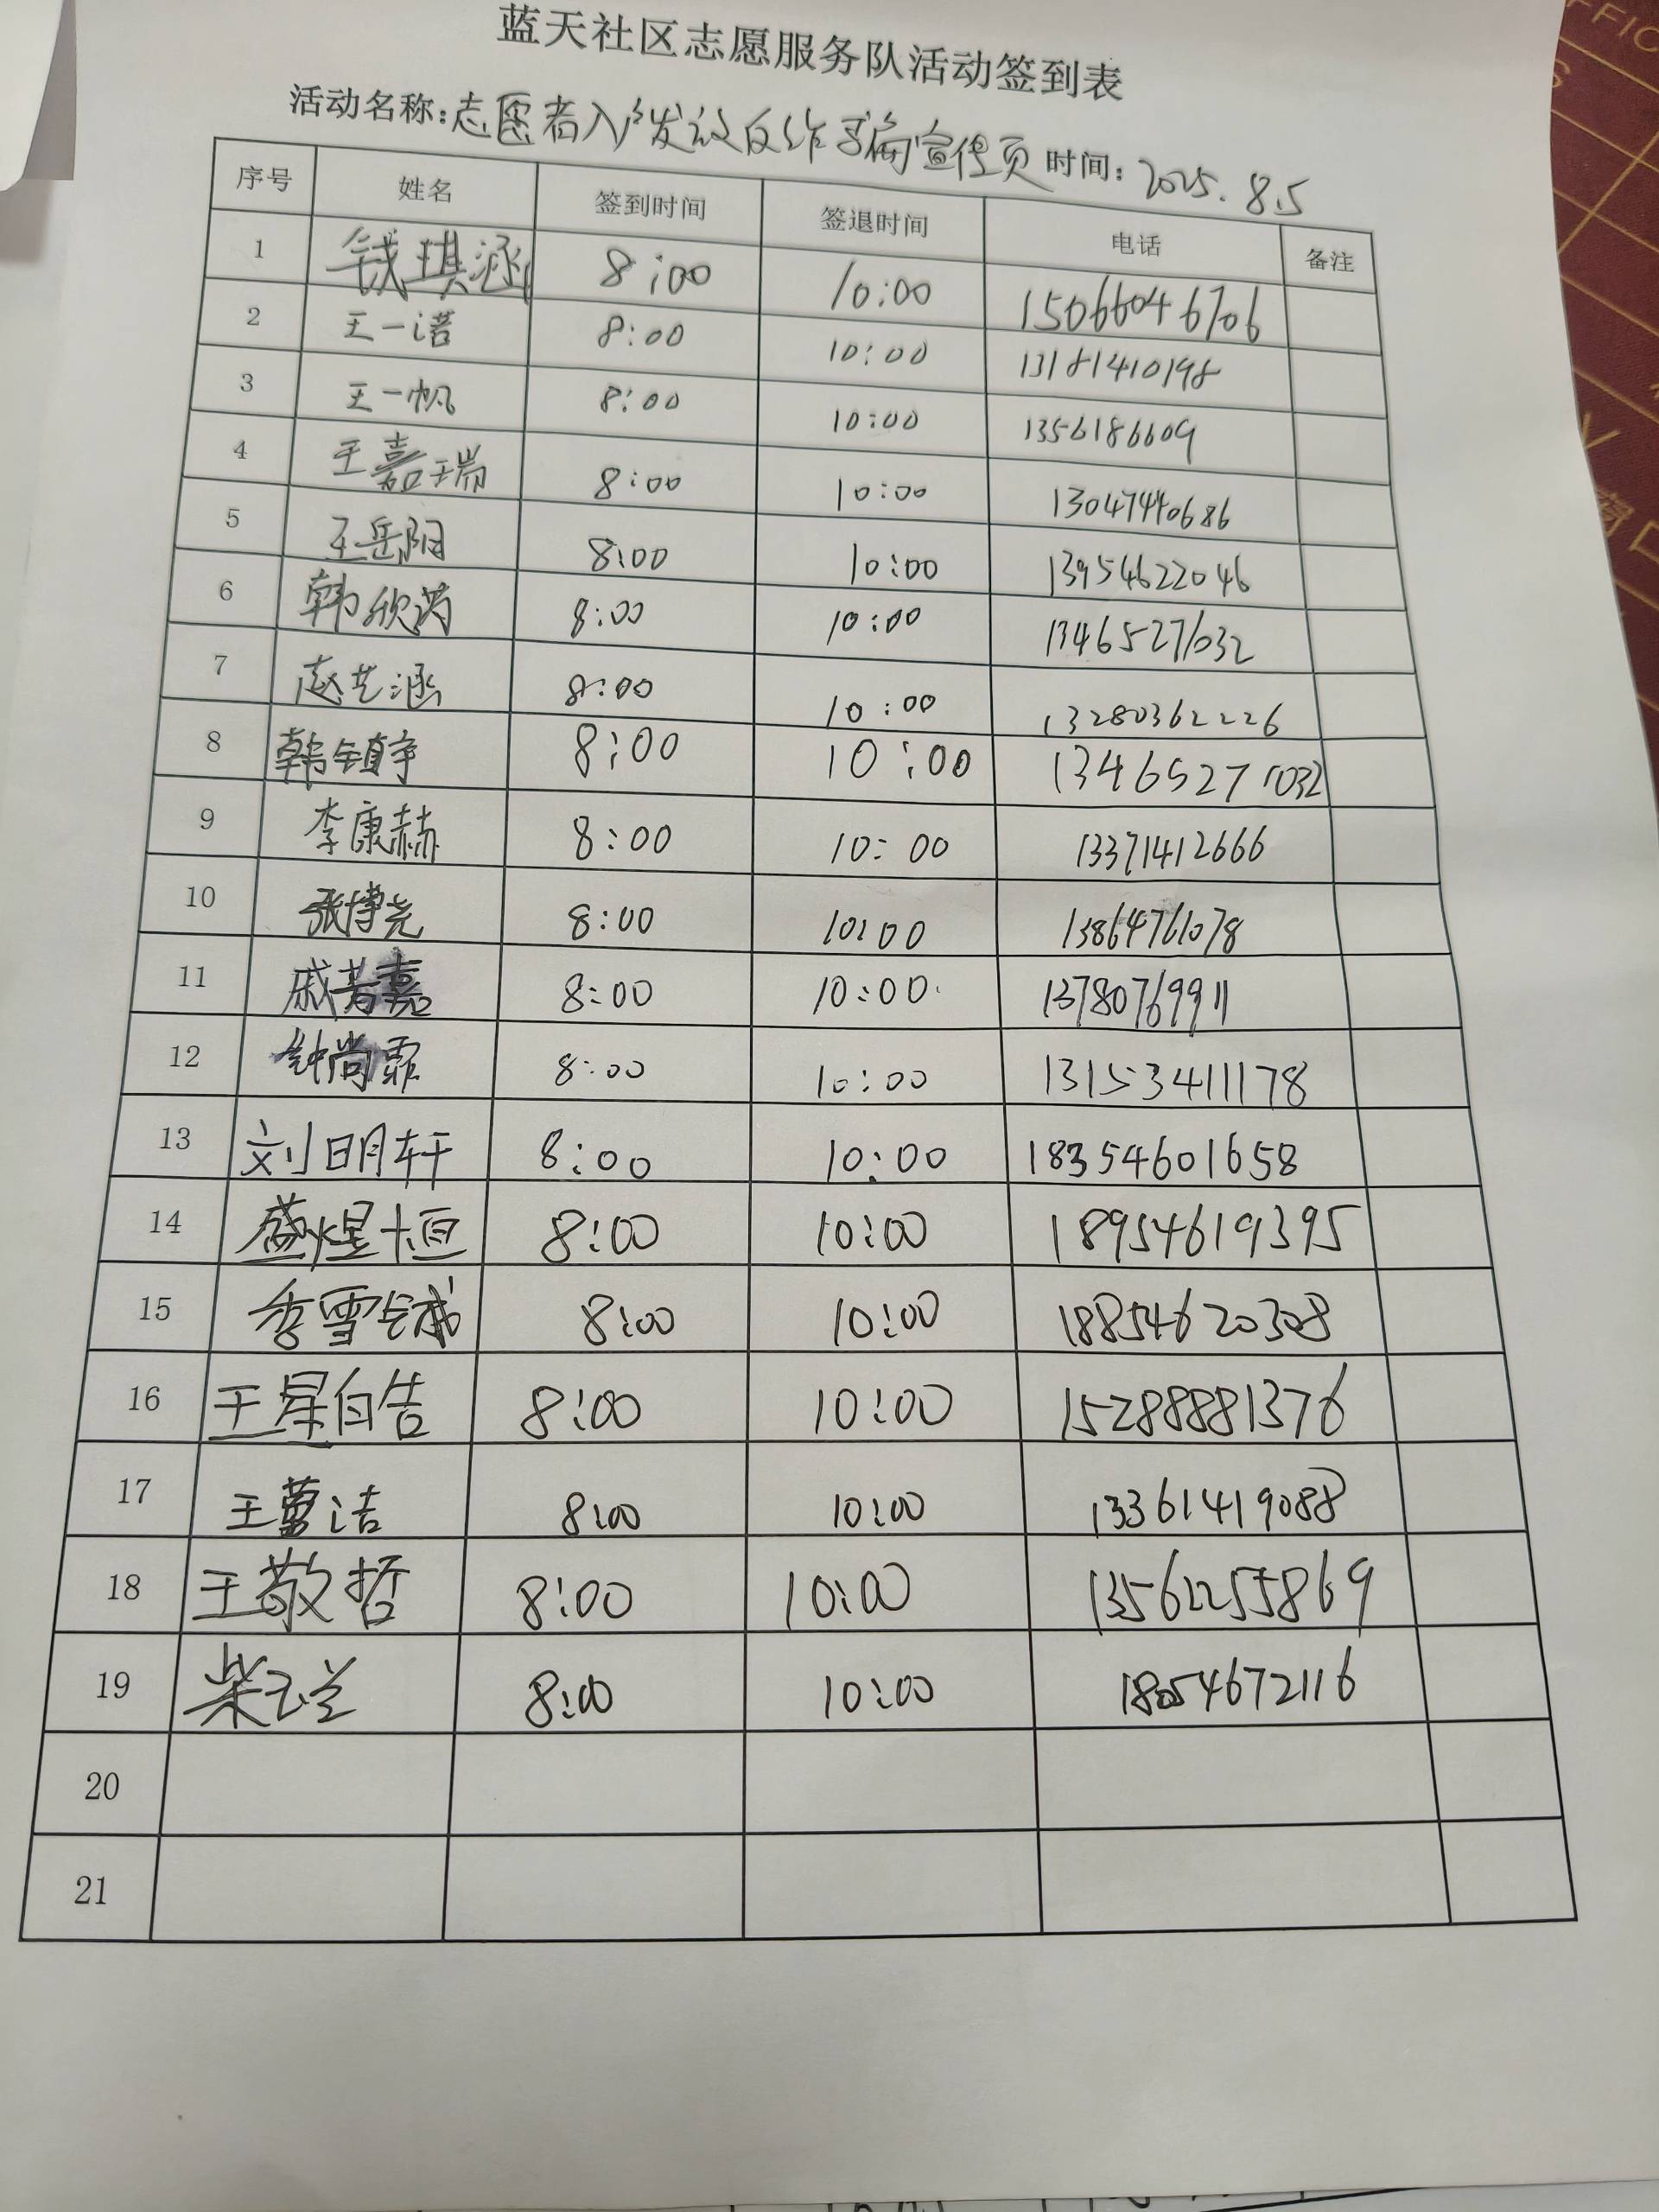 蓝天社区志愿服务队活动签到表
活动名称:志愿者入户发放反诈骗宣传页 时间: 2025.8.5
序号 姓名 签到时间 签退时间 电话 备注
1 钱琪涵 8:00 10:00 15066046706
2 王一诺 8:00 10:00 13181410198
3 王一帆 8:00 10:00 1356186609
4 王嘉瑞 8:00 10:00 13047440686
5 王岳阳 8:00 10:00 13954622046
6 韩欣芮 8:00 10:00 13465271032
7 赵艺涵 8:00 10:00 13280362226
8 韩镇宇 8:00 10:00 13465271032
9 李康赫 8:00 10:00 13371412666
10 张博尧 8:00 10:00 13864761078
11 戚芳嘉 8:00 10:00 13780769911
12 钟尚霏 8:00 10:00 13153411178
13 刘明轩 8:00 10:00 18354601658
14 盛煜恒 8:00 10:00 18954619395
15 李雪铖 8:00 10:00 18854620308
16 8:00 10:00 15288881376
17 8:00 10:00 13361419088
18 王敬哲 8:00 10:00 13562255869
19 柴玉兰 8:00 10:00 18054672116
20
21